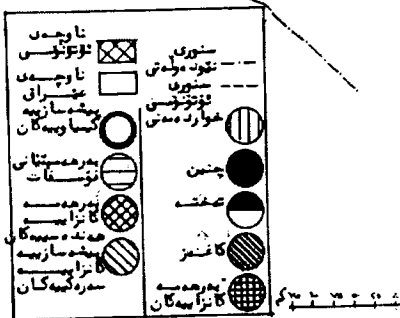 ناوچەی
ئۆتۆنۆمیی
ناوچەی
عێراقی
پیشەسازییە
کیمیاوییەکان
بەرهەمهێنانی
فۆسفات
بەرهەمە
کانزاییە
هەندەسییەکان
پیشەسازییە
کانزاییە
سەرەکییەکان
سنوری
نێودەوڵەتی
سنوری
ئۆتۆنۆمیی
خواردەمەنی
چنین
تەختە
کاغەز
بەرهەمە
کانزاییەکان
کم